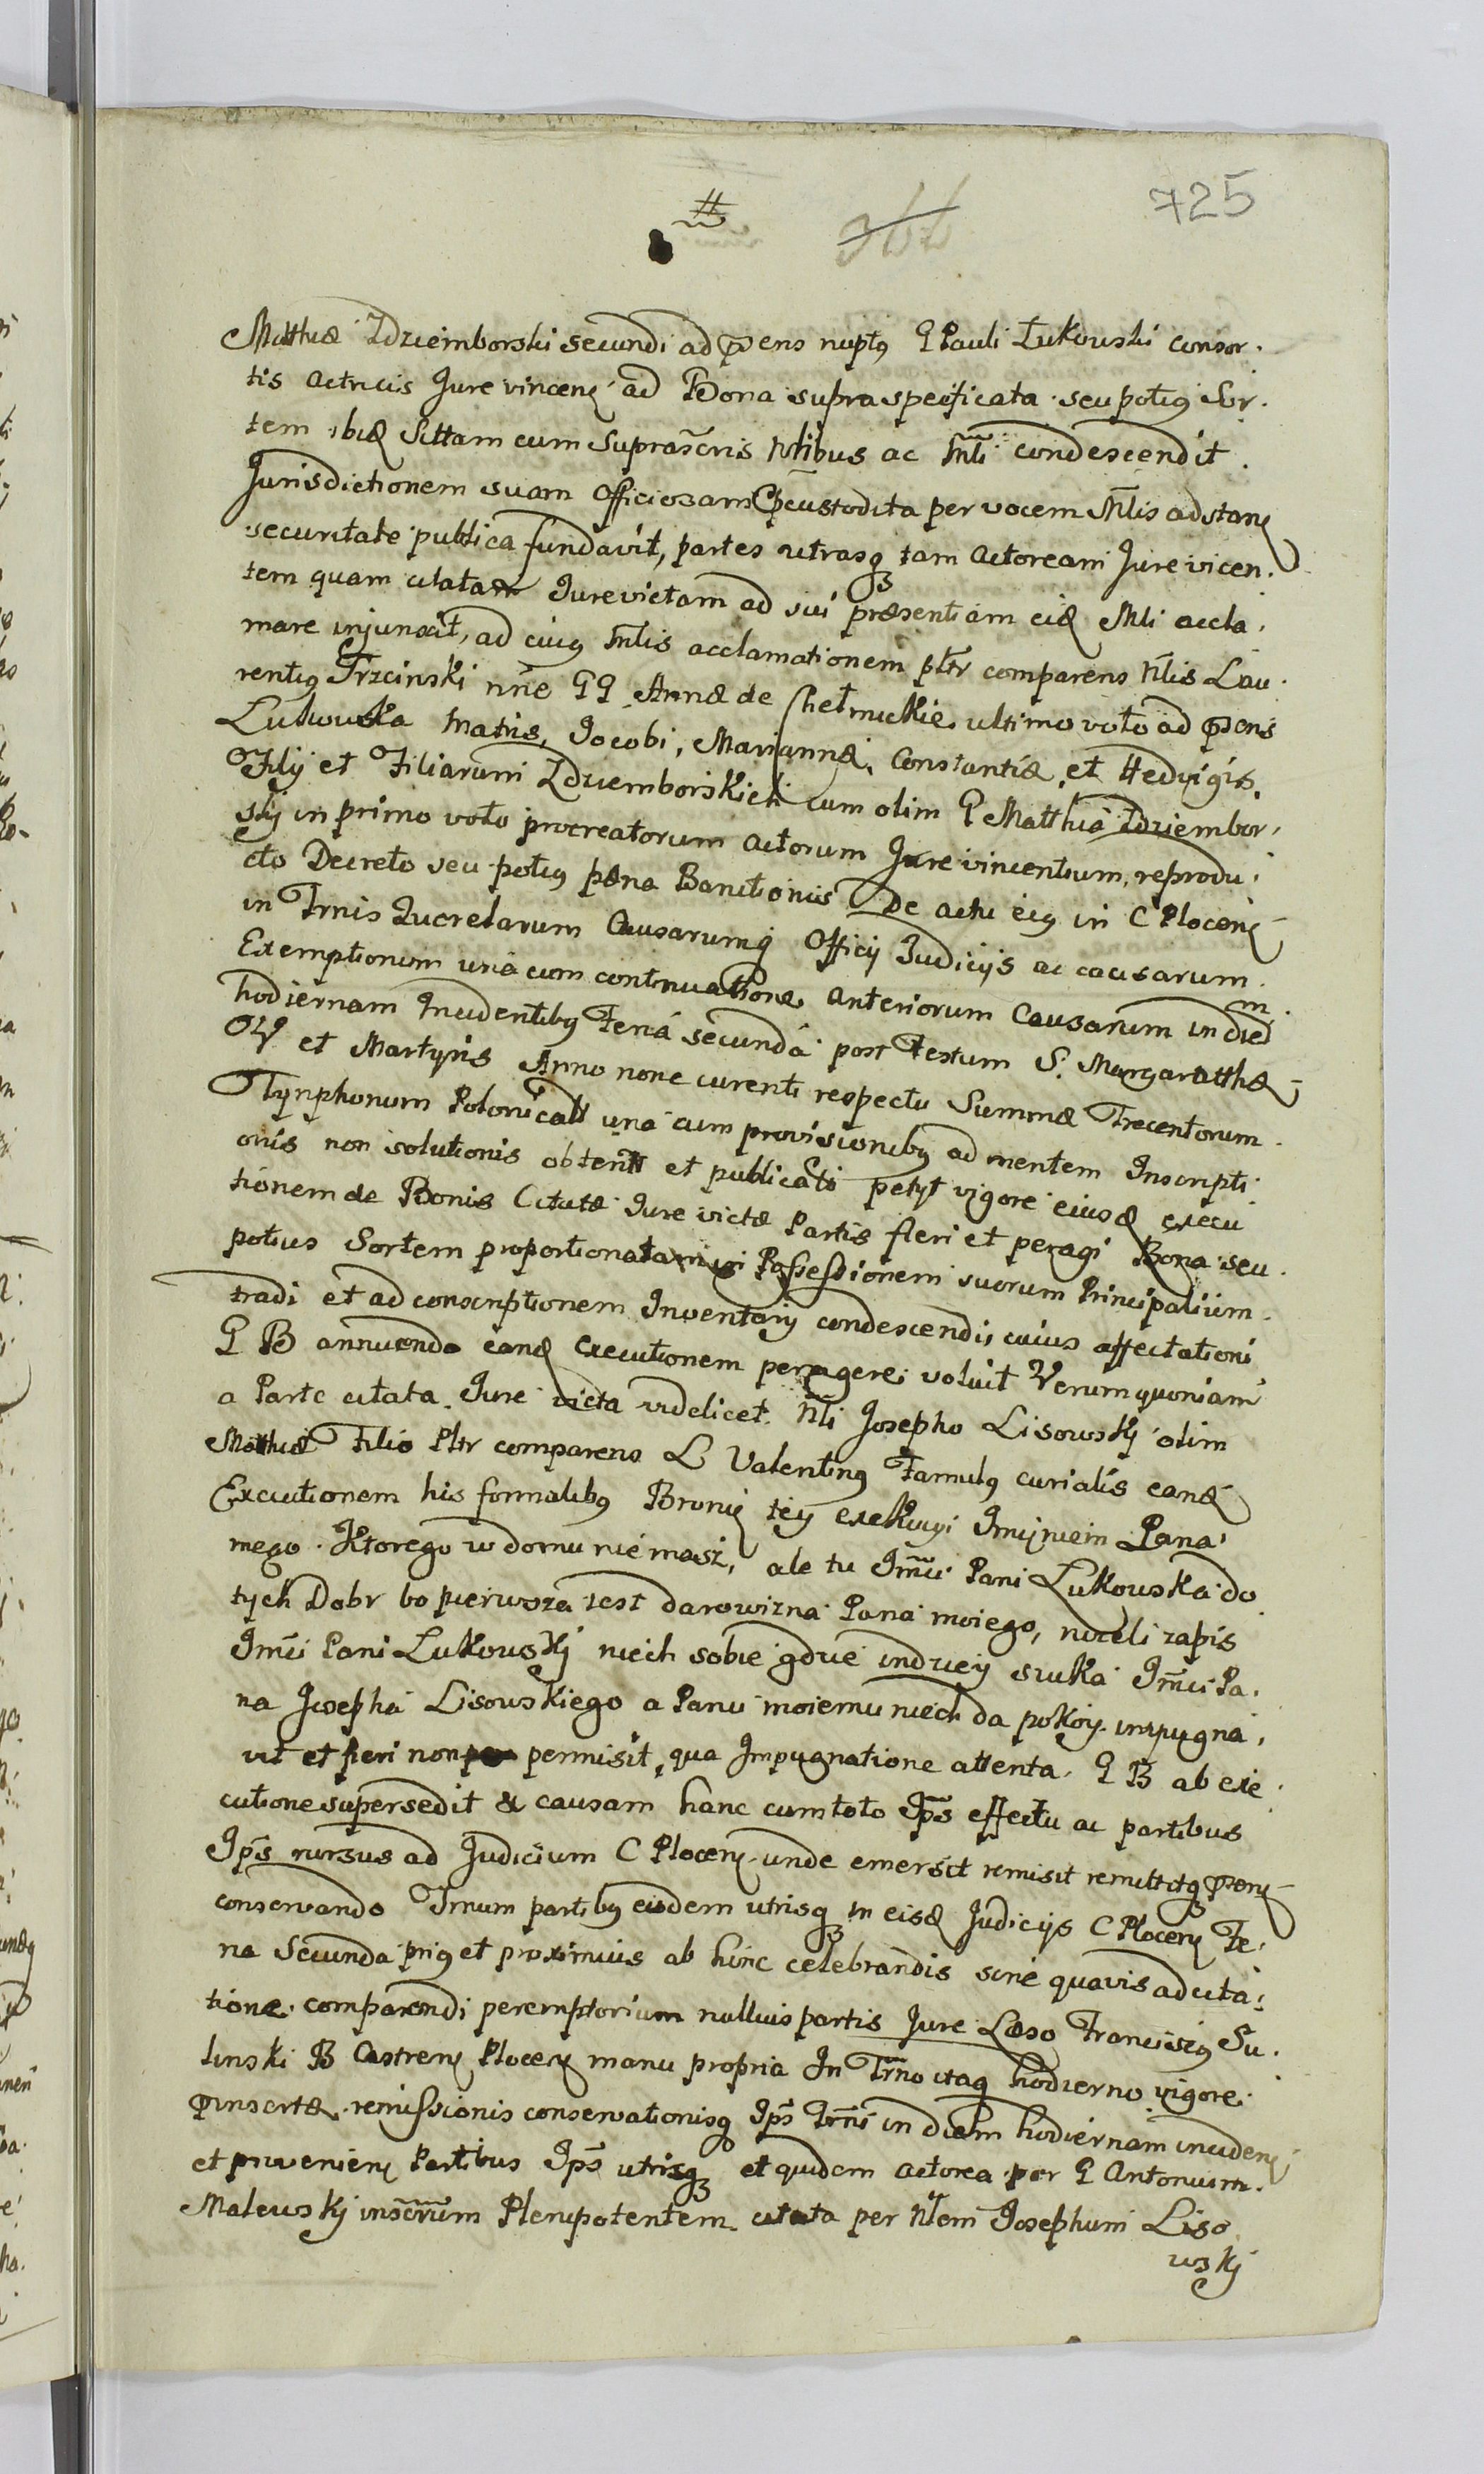 725
Matthiæ Zdziemborski secundi ad pñs nuptę G Pauli Łukowski consor.
tis actricis Jure vincenę ad Bona supra specificata seu potię Sor.
tem ibiđ Sittam cum suprascris Nlibus ac Mli condescendit.
Jurisdictionem suam officiosam custodita per vocem Mlis adstanę
securitate publica fundavit, partes utrasq tam Actoream Jure vicen.
tem quam citatam Jurevictam ad sui præsentiam eiđ Mli accla.
mare injunxit, ad cuię Mlis acclamationem pltr comparens Nlis Lau.
rentię Trzcinski nne GG Annæ de Chełmickie ultimo voto ad pñs
Lukowska Matris, Jacobi, Mariannæ, Constantiæ, et Hedvigis,
Filij et Filiarum Zdziemborskich cum olim G Matthia Zdziembor.
skj in primo voto procreatorum Actorum Jure vincentium, reprodu.
cto Decreto seu potię pæna Banitionis de actu eię in C Plocenę
in Trnis Querelarum Causarumq Officij Judicijs ac causarum
Exemptionum una cum continuatione anteriorum Causarum in diem
hodiernam Incidentibę Feria secunda post Festum S. Margaretthæ
V et Martyris Anno nonc curenti respectu Summæ Trecentorum
Tynphonum Polonicall una cum provisionibę ad mentem Inscripti
onis non solutionis obtenti et publicati petyt vigore eiusđ execu
tionem de Bonis Citatæ Jure victæ Partis fieri et peragi Bona seu
potius Sortem proportionatam in Possessionem suorum Principalium
tradi et ad conscriptionem Inventarij condescendi, cuius affectationi
G B annuendo eanđ Executionem peragere voluit Verum quoniam
a Parte citata Jure victa videlicet Nli Josepho Lisowskj olim
Matthiæ Filio Pltr comparens L Valentinę Famulę curialis eanđ
Executionem his formalibę Bronię tey exekucyi Imieniem Pana
mego. Ktorego w domu nie masz, ale tu Jmći Pani Lukowska do
tych Dobr bo pierwsza iest darowizna Pana moiego, niżeli zapis
Jmći Pani Lukowskj niech sobie gdzie indziey szuka Jmći Pa.
na Josepha Lisowskiego a Panu moiemu niech da pokoy. impugna.
vit et fieri non permisit, qua Impugnatione attenta. G B ab exe
cutione supersedit & causam hanc cum toto Jps effectu ac partibus
Jps rursus ad Judicium C Plocenę unde emersit remisit remittitq pñnę
conservando Trnum partibę eisdem utrisq in eisđ Judicijs C Plocenę Fe.
ria Secunda prię et proximius ab hinc celebrandis sine quavis adcita.
tione comparendi peremptorium nullius partis Jure Læso Franciscę Su.
linski B Castrenę Plocenę manu propria In Trno itaq hodierno vigore
pinsertæ remissionis conservationisq Jps Trni in diem hodiernam incidenę
et provenienę Partibus Jps utrisq et quidem actorea per G Antonium
Malewskj inscrum Plenipotentem citata per Nlem Josephum Liso
wskj